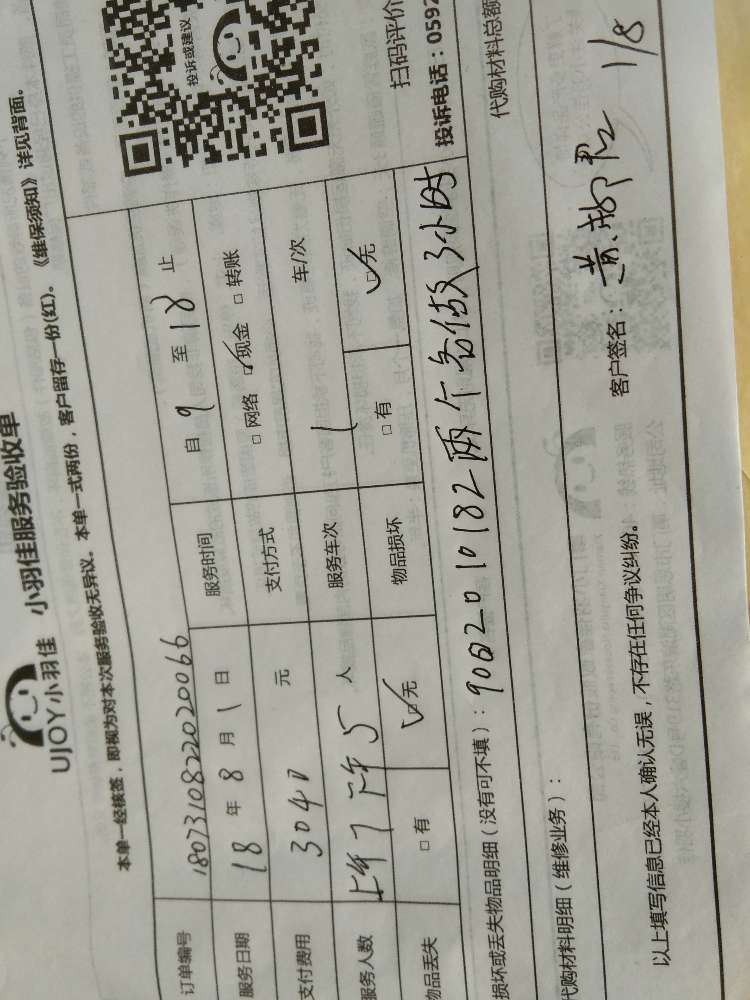 UJOY小羽佳 小羽佳服务验收单
本单一经核签，即视为对本次服务验收无异议。本单一式两份，客户留存一份(红)。《维保须知》详见背面。
订单编号 18073108220200066
服务日期 18 年 8 月 1 日 服务时间 自 9 至 18 止
支付费用 3040 元 支付方式 □ 网络 ☑ 现金 □ 转账
服务人数 上午7 下午5 人 服务车次 1 车/次
物品丢失 □ 有 ☑ 无 物品损坏 □ 有 ☑ 无
投诉或建议
扫码评价
投诉电话：0592
损坏或丢失物品明细（没有可不填）：两个各做3小时
代购材料明细（维修业务）： 代购材料总额
以上填写信息已经本人确认无误，不存在任何争议纠纷。 客户签名： 1/8